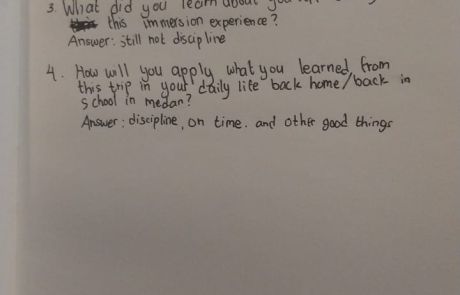 3. What did you learn about
this immersion experience?
Answer: still not discipline
4. How will you apply what you learned from
this trip in your daily life back home/back in
school in medan?
Answer: discipline, on time. and other good things